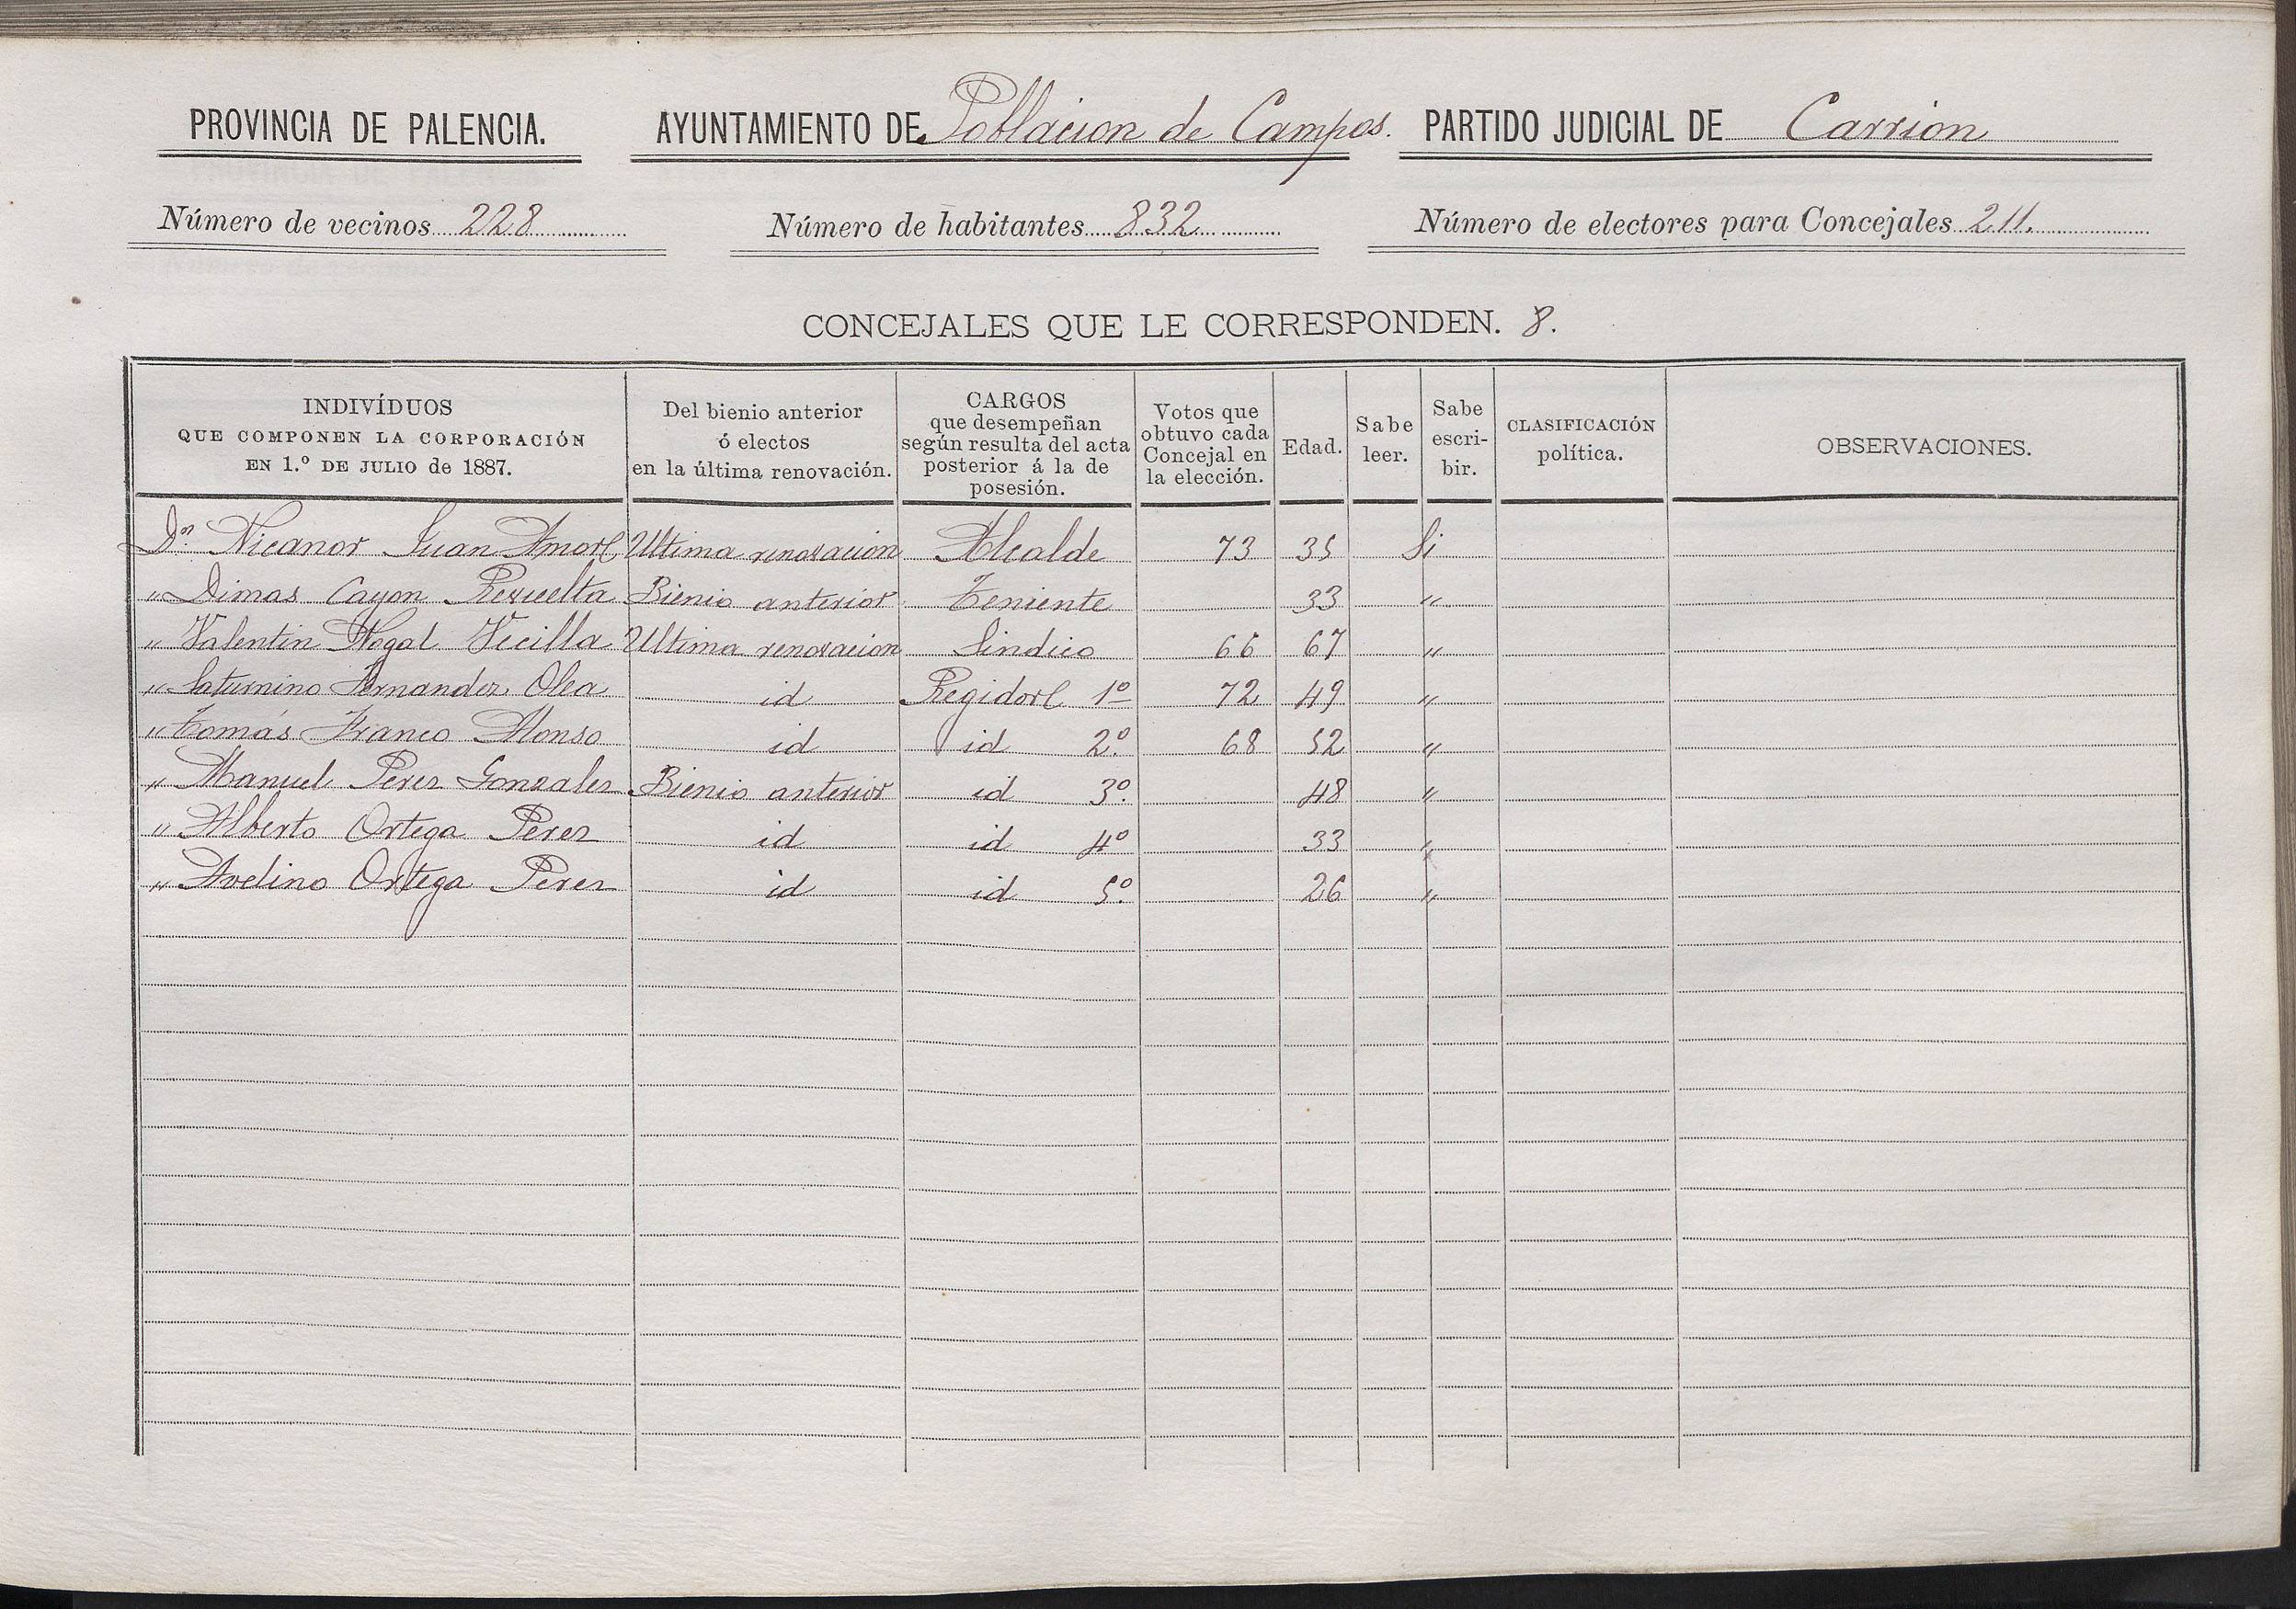 PROVINCIA DE PALENCIA. AYUNTAMIENTO DE Poblacion de Campos. PARTIDO JUDICIAL DE Carrion
Número de vecinos 228 Número de habitantes 832 Número de electores para Concejales 211.
CONCEJALES QUE LE CORRESPONDEN. 8.
INDIVÍDUOS
QUE COMPONEN LA CORPORACIÓN
EN 1.º DE JULIO de 1887.
Del bienio anterior
ó electos
en la última renovación.
CARGOS
que desempeñan
según resulta del acta
posterior á la de
posesión.
Votos que
obtuvo cada
Concejal en
la elección.
Edad.
Sabe
leer.
Sabe
escri-
bir.
CLASIFICACIÓN
política.
OBSERVACIONES.
Dn. Nicanor Juan Amor Ultima renovacion Alcalde 73 35 Si
" Dimas Cayon Revuelta Bienio anterior Teniente 33 "
" Valentin Nogal Vecilla Ultima renovacion Sindico 66 67 "
" Saturnino Fernandez Olea id Regidor 1º 72 49 "
" Tomás Franco Alonso id id 2º. 68 52 "
" Manuel Perez Gonzalez Bienio anterior id 3º. 48 "
" Alberto Ortega Perez id id 4º 33 "
" Avelino Ortega Perez id id 5º. 26 "